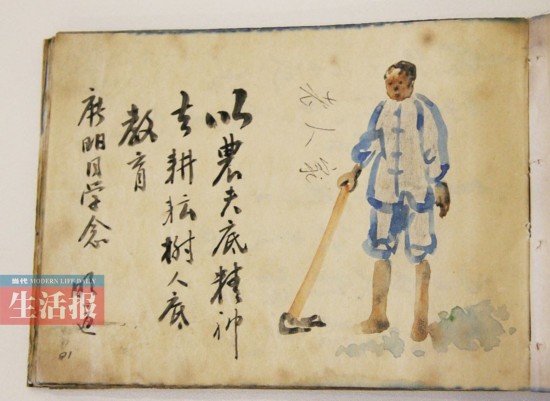 以農夫底精神
去耕耘樹人底
教育
明同学念
老人家
当代 MODERN LIFE DAILY
生活报
01